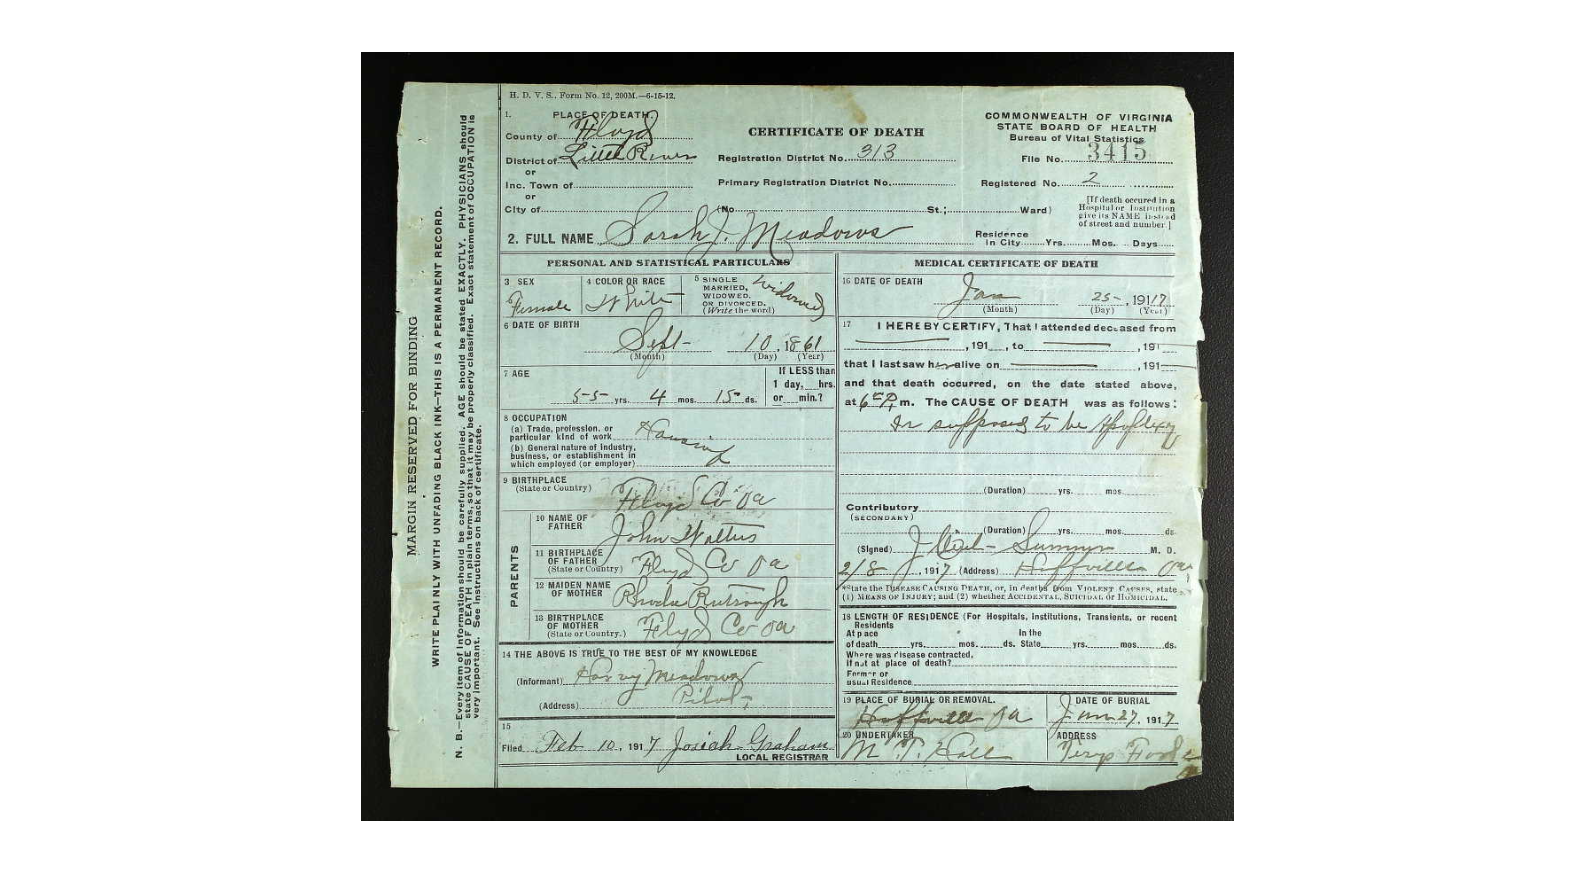 H. D. V. S., Form No. 12, 200M.—6-15-12.
1. PLACE OF DEATH.
County of Floyd
District of Little River
or
Inc. Town of
or
City of
CERTIFICATE OF DEATH
Registration District No. 313
Primary Registration District No.
(No. St.; Ward)
COMMONWEALTH OF VIRGINIA
STATE BOARD OF HEALTH
Bureau of Vital Statistics
File No. 3415
Registered No. 2
[If death occured in a
Hospital or Institution
give its NAME instead
of street and number]
2. FULL NAME Sarah J. Meadows
Residence
In City Yrs. Mos. Days
PERSONAL AND STATISTICAL PARTICULARS
3 SEX
Female
4 COLOR OR RACE
White
5 SINGLE
MARRIED,
WIDOWED,
OR DIVORCED.
(Write the word)
Widowed
6 DATE OF BIRTH
Sept 10, 1861
(Month) (Day) (Year)
7 AGE
55 yrs. 4 mos. 15 ds.
If LESS than
1 day, hrs.
or min.?
8 OCCUPATION
(a) Trade, profession, or
particular kind of work
(b) General nature of industry,
business, or establishment in
which employed (or employer)
9 BIRTHPLACE
(State or Country)
Floyd Co Va
PARENTS
10 NAME OF
FATHER
John Walters
11 BIRTHPLACE
OF FATHER
(State or Country)
Floyd Co Va
12 MAIDEN NAME
OF MOTHER
Rhoda
13 BIRTHPLACE
OF MOTHER
(State or Country.)
Floyd Co Va
14 THE ABOVE IS TRUE TO THE BEST OF MY KNOWLEDGE
(Informant) Harvy Meadows
(Address) Pilot
15
Filed Feb 10, 1917 Josiah Graham
LOCAL REGISTRAR
MEDICAL CERTIFICATE OF DEATH
16 DATE OF DEATH
Jan 25, 1917
(Month) (Day) (Year)
17 I HEREBY CERTIFY, That I attended deceased from
, 191 , to , 191
that I last saw her alive on , 191
and that death occurred, on the date stated above,
at 6 P. m. The CAUSE OF DEATH was as follows:
Is supposed to be Apoplexy
(Duration) yrs. mos.
Contributory
(SECONDARY)
(Duration) yrs. mos. ds.
(Signed) J M. D.
2/8, 1917 (Address) Huffville Va
*State the DISEASE CAUSING DEATH, or, in deaths from VIOLENT CAUSES, state
(1) MEANS OF INJURY; and (2) whether ACCIDENTAL, SUICIDAL or HOMICIDAL.
18 LENGTH OF RESIDENCE (For Hospitals, Institutions, Transients, or recent
Residents
At place In the
of death yrs. mos. ds. State yrs. mos. ds.
Where was disease contracted,
If not at place of death?
Former or
usual Residence
19 PLACE OF BURIAL OR REMOVAL.
Huffville Va
DATE OF BURIAL
Jan 27, 1917
20 UNDERTAKER
M. T. Hall
ADDRESS
MARGIN RESERVED FOR BINDING
WRITE PLAINLY WITH UNFADING BLACK INK—THIS IS A PERMANENT RECORD.
N. B.—Every item of information should be carefully supplied. AGE should be stated EXACTLY. PHYSICIANS should
state CAUSE OF DEATH in plain terms, so that it may be properly classified. Exact statement of OCCUPATION is
very important. See instructions on back of certificate.